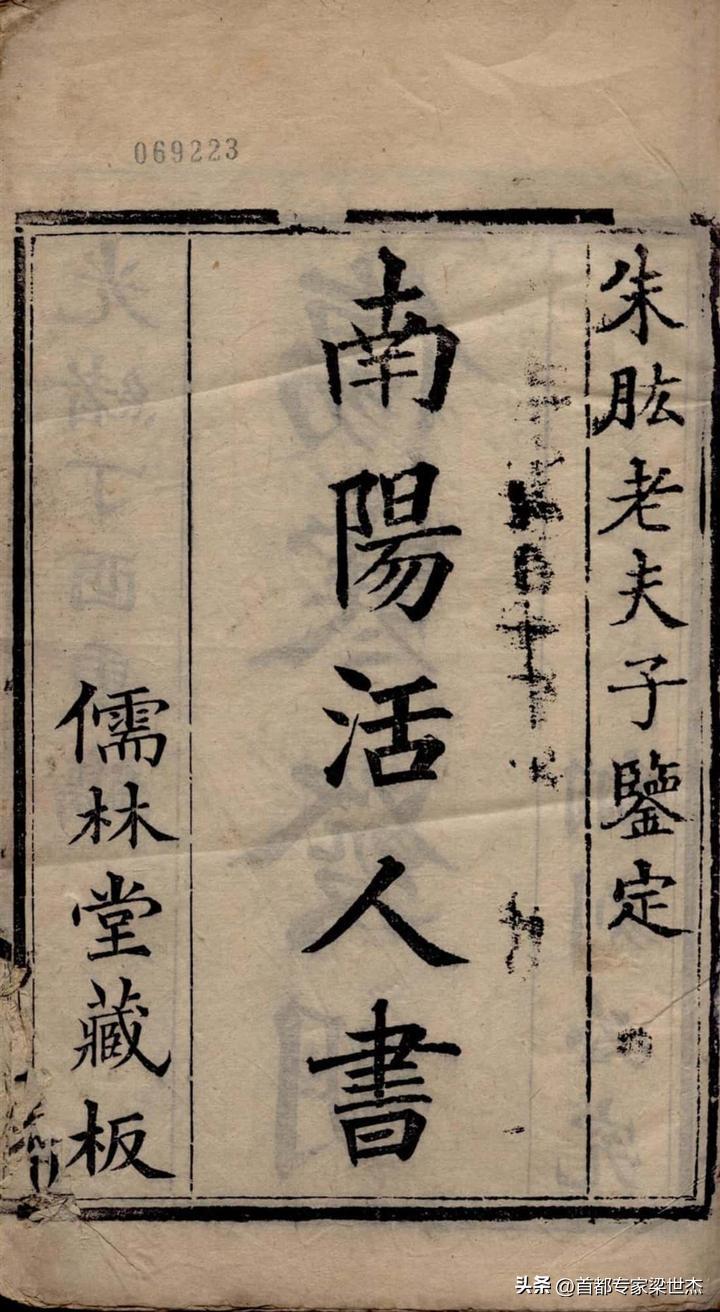 069223
朱肱老夫子鑒定
南陽活人書
儒林堂藏板
头条 @首都专家梁世杰